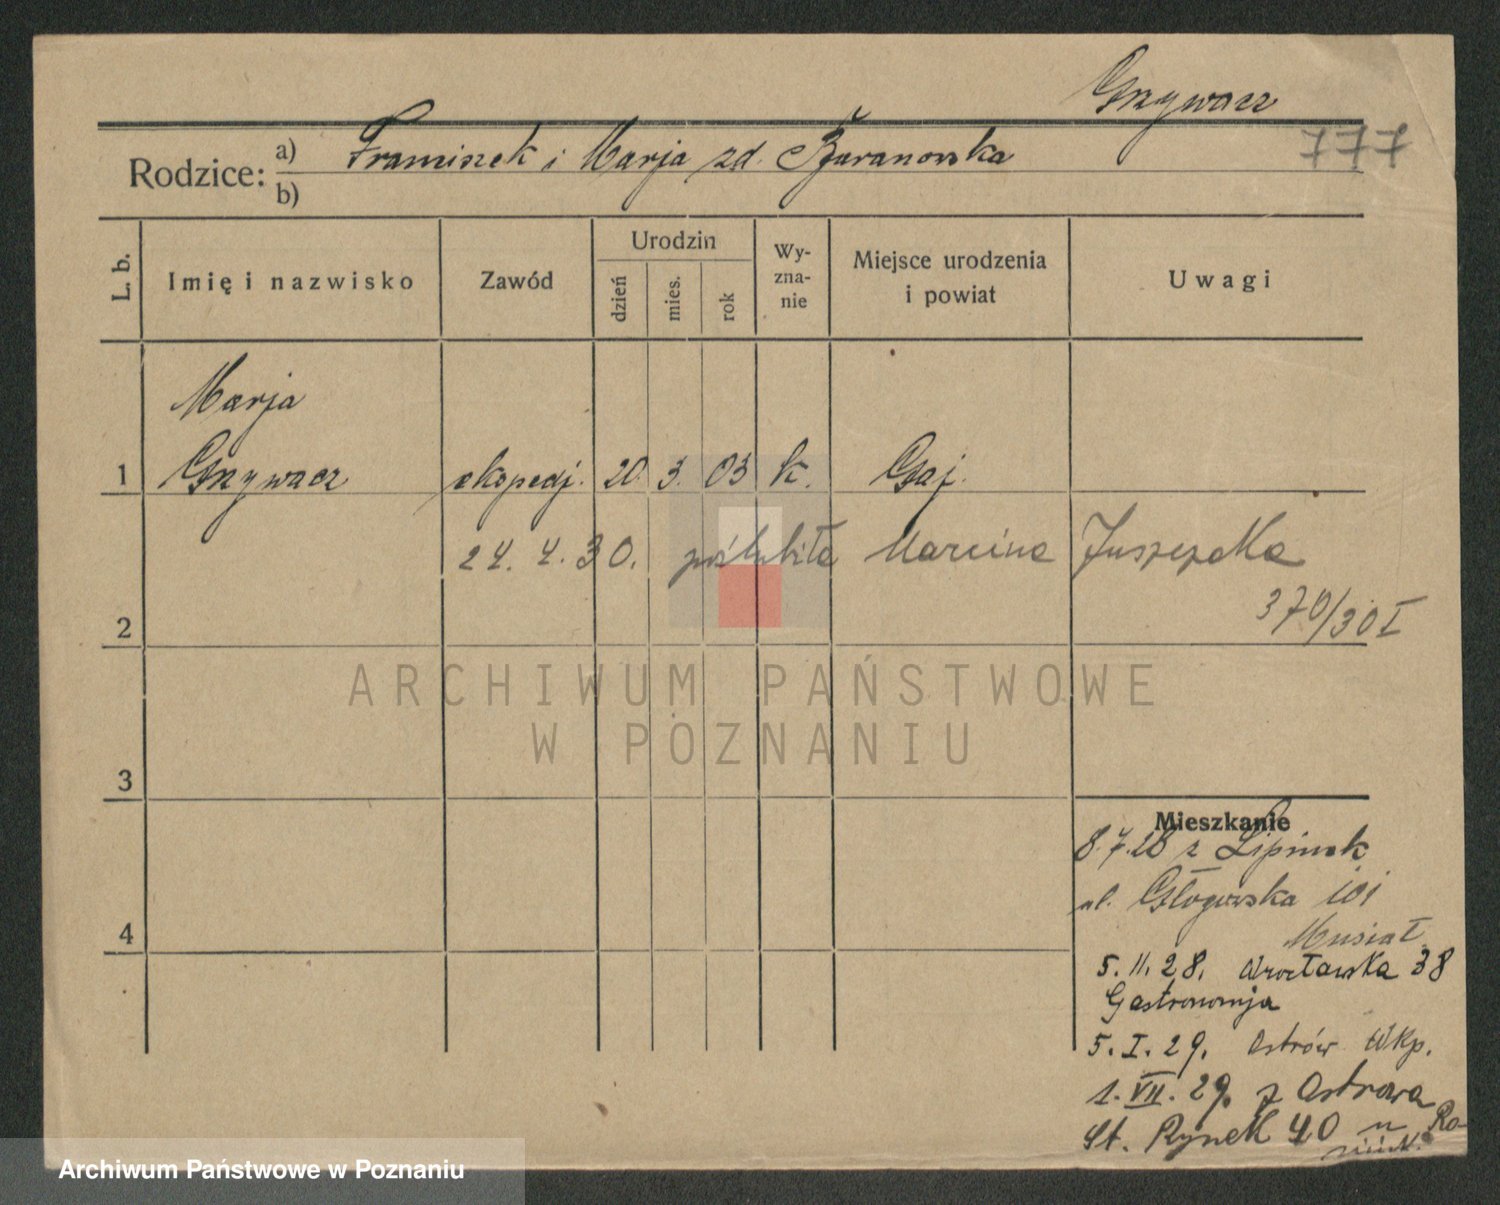 Grzywacz
777
Rodzice: a) Franciszek i Marja zd. Żuranowska
b)
L. b.
Imię i nazwisko
Zawód
Urodzin
dzień
mies.
rok
Wy-
zna-
nie
Miejsce urodzenia
i powiat
Uwagi
Marja
1 Grzywacz ekspedj. 20. 3. 03 k. Gaj.
24. 4. 30. poślubiła Marcina Juszczaka
370/30 I
2
ARCHIWUM PAŃSTWOWE
W POZNANIU
3
Mieszkanie
8.7.28 z Lipinek
ul. Głogowska 101
4
Musiał
5. 11. 28. Wrocławska 38
Gastronomja
5. I. 29. Ostrów Wkp.
1. VII. 29. z Ostrowa
St. Rynek 40 u
Archiwum Państwowe w Poznaniu